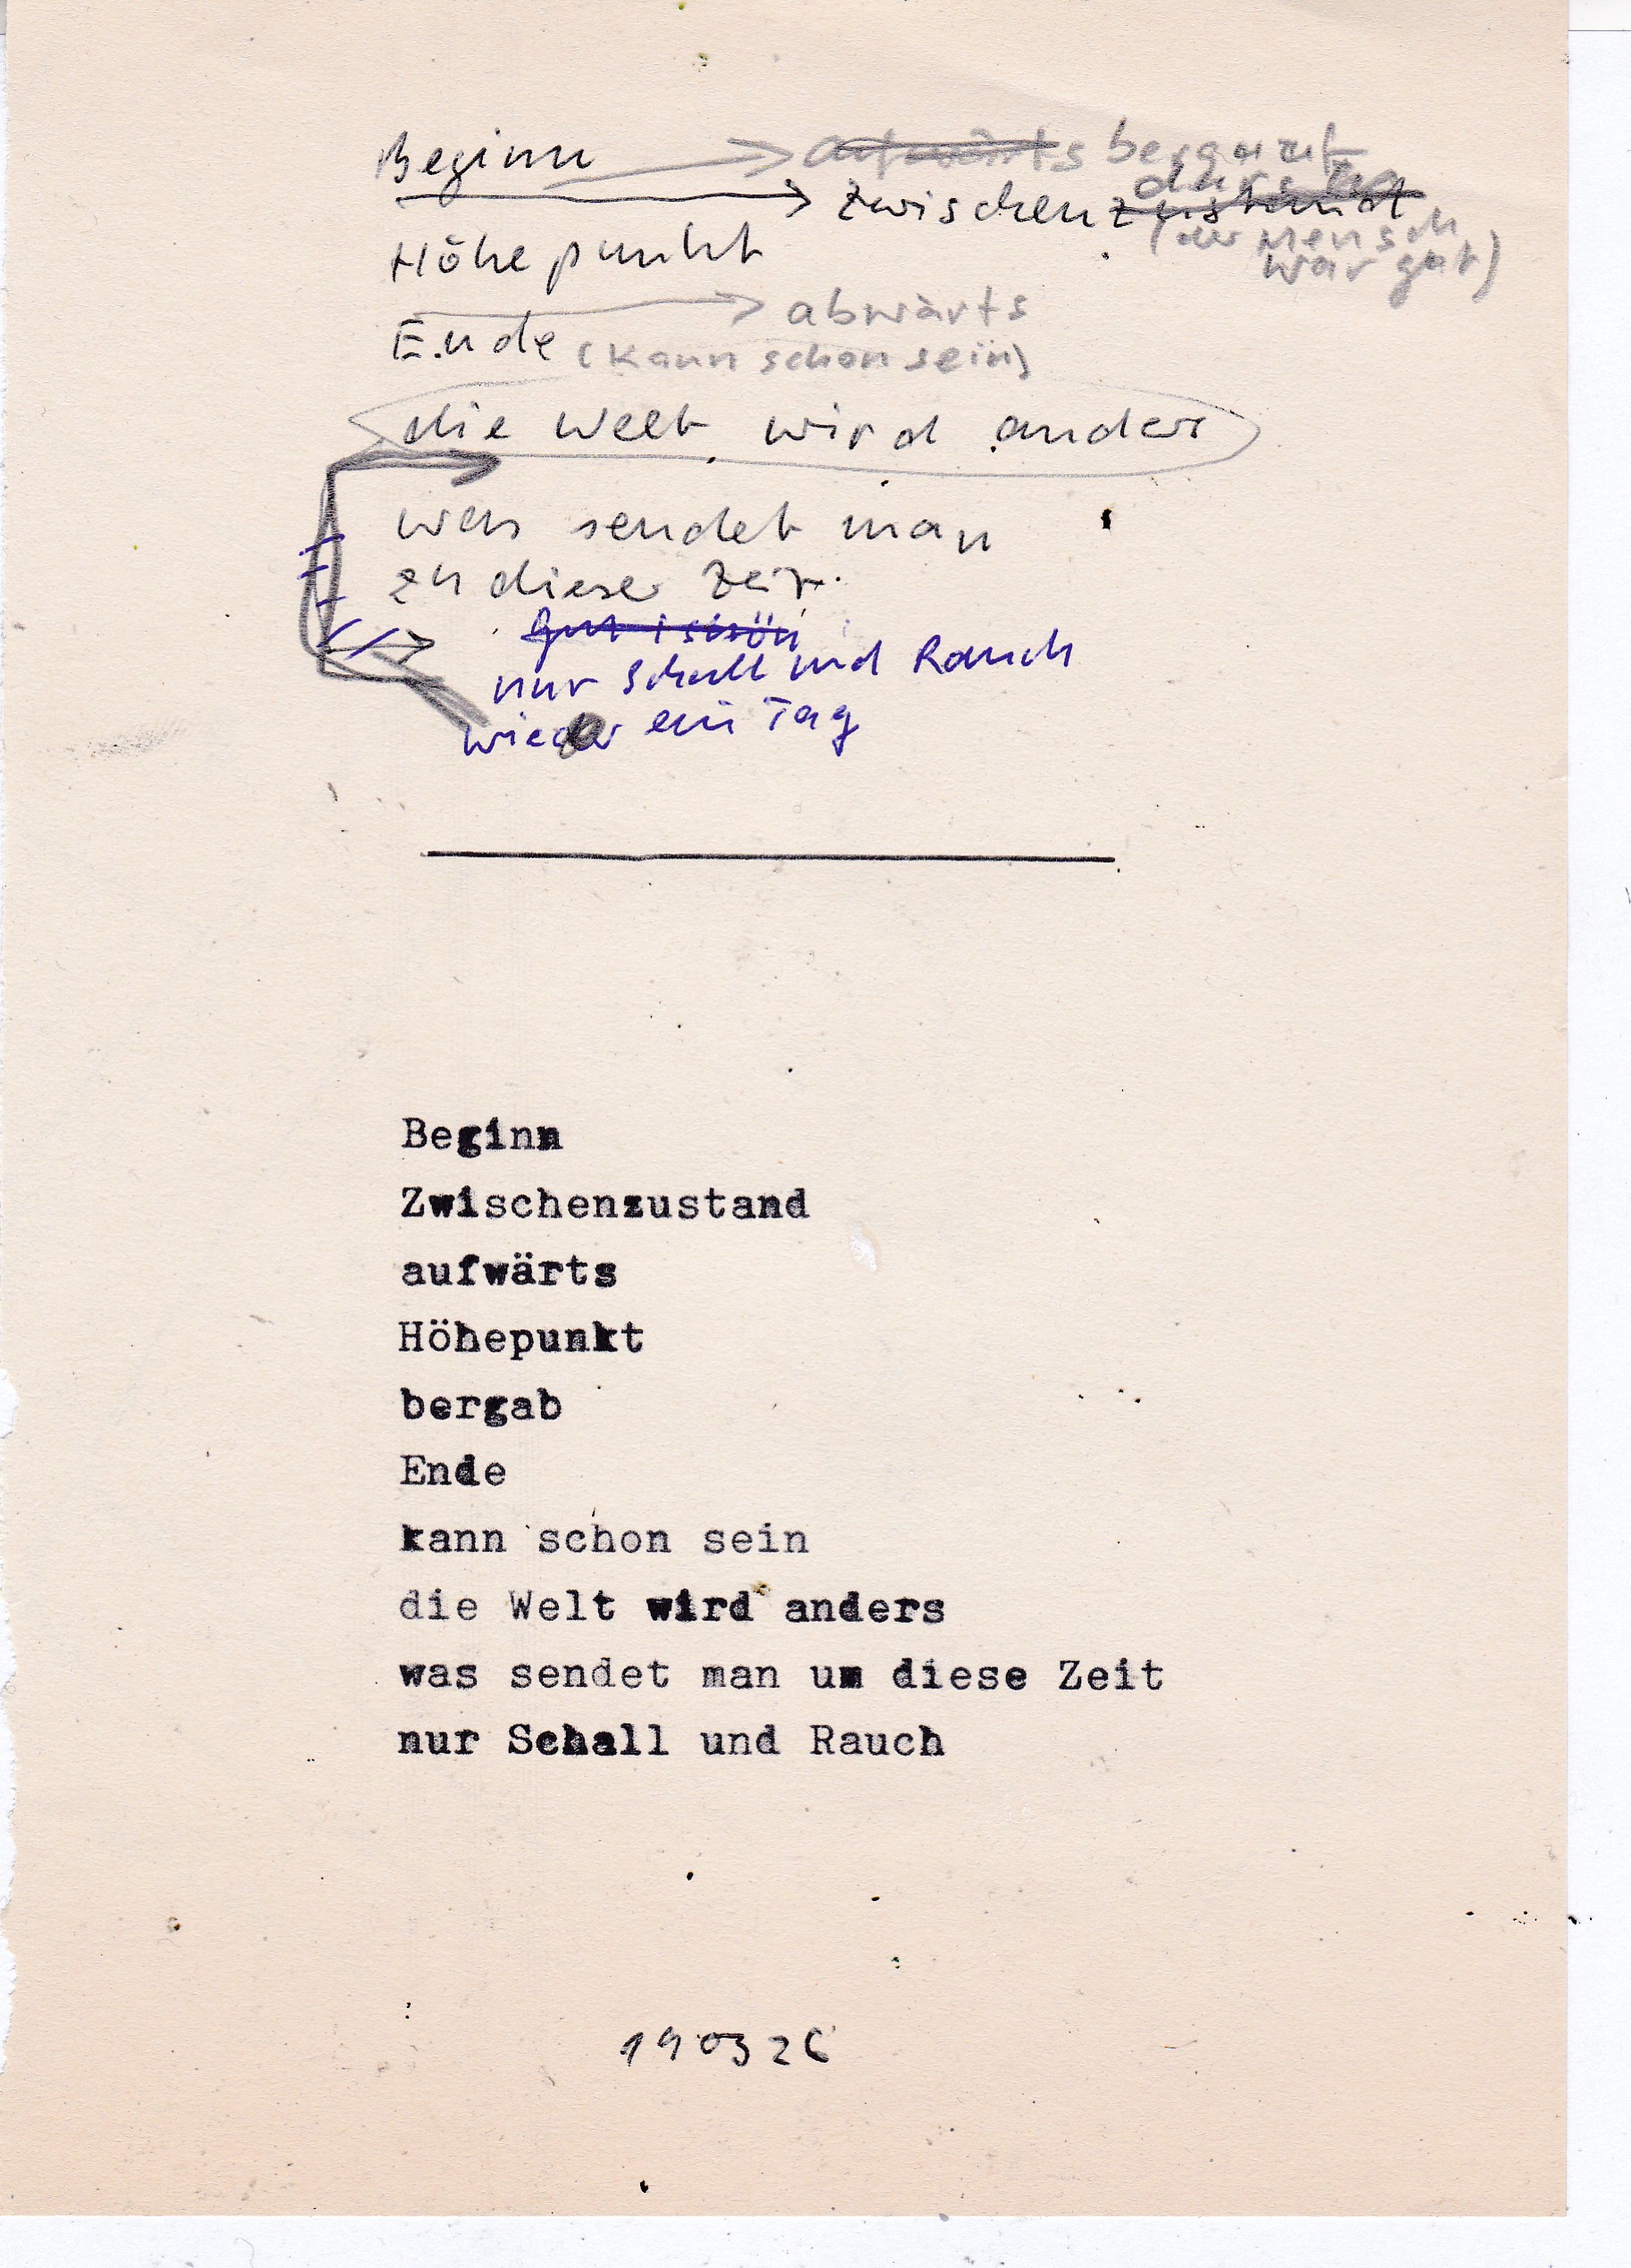 Beginn → aufwärts bergauf
→ Zwischenzustand
(der Mensch
war gut)
Höhepunkt
→ abwärts
Ende (kann schon sein)
die Welt wird anders
was sendet man
zu dieser Zeit
gut + schön
nur Schall und Rauch
wieder ein Tag
Beginn
Zwischenzustand
aufwärts
Höhepunkt
bergab
Ende
kann schon sein
die Welt wird anders
was sendet man um diese Zeit
nur Schall und Rauch
190326